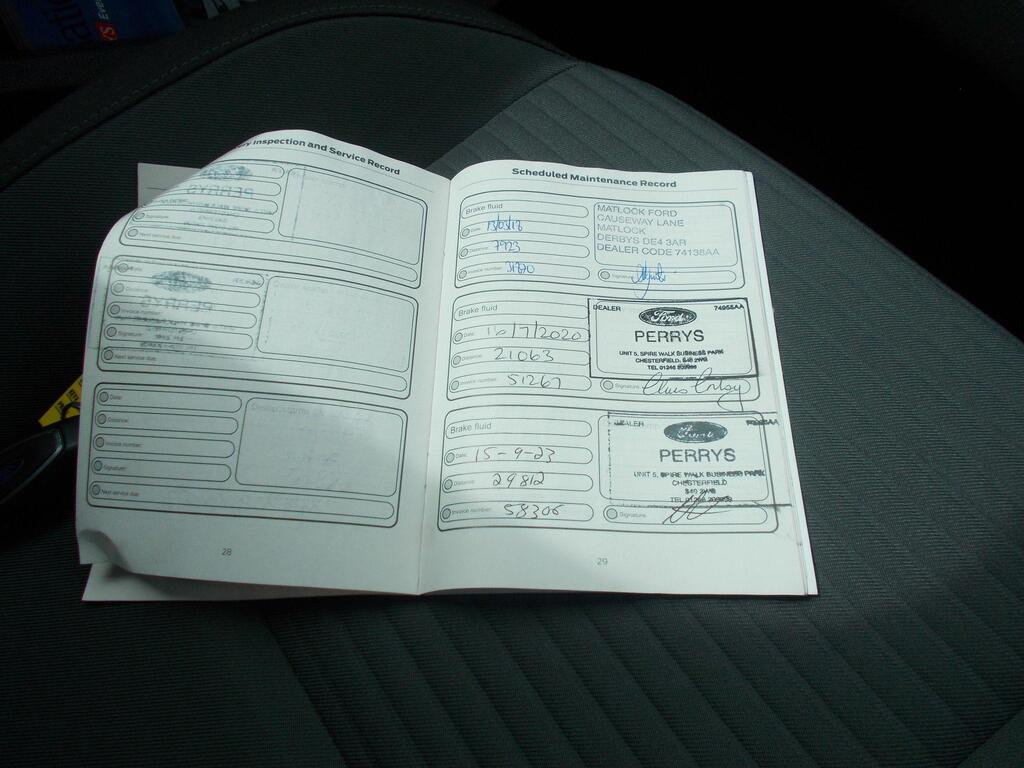 ry Inspection and Service Record
PERRYS
Signature:
Next service due:
Date:
Distance:
Invoice number:
Signature:
Next service due:
PERRYS
Date:
Distance:
Invoice number:
Signature:
Next service due:
28
Scheduled Maintenance Record
Brake fluid
Date: 13/03/18
Distance: 7923
Invoice number:
MATLOCK FORD
CAUSEWAY LANE
MATLOCK
DERBYS DE4 3AR
DEALER CODE 74138AA
Signature:
Brake fluid
Date: 16/7/2020
Distance: 21063
Invoice number: 51267
DEALER 74955AA
Ford
PERRYS
UNIT 5, SPIRE WALK BUSINESS PARK
CHESTERFIELD, S40 2WG
TEL 01246
Signature:
Brake fluid
Date: 15-9-23
Distance: 29812
Invoice number: 58306
DEALER
Ford
PERRYS
UNIT 5, SPIRE WALK BUSINESS PARK
CHESTERFIELD
S40 2WG
TEL
Signature:
29